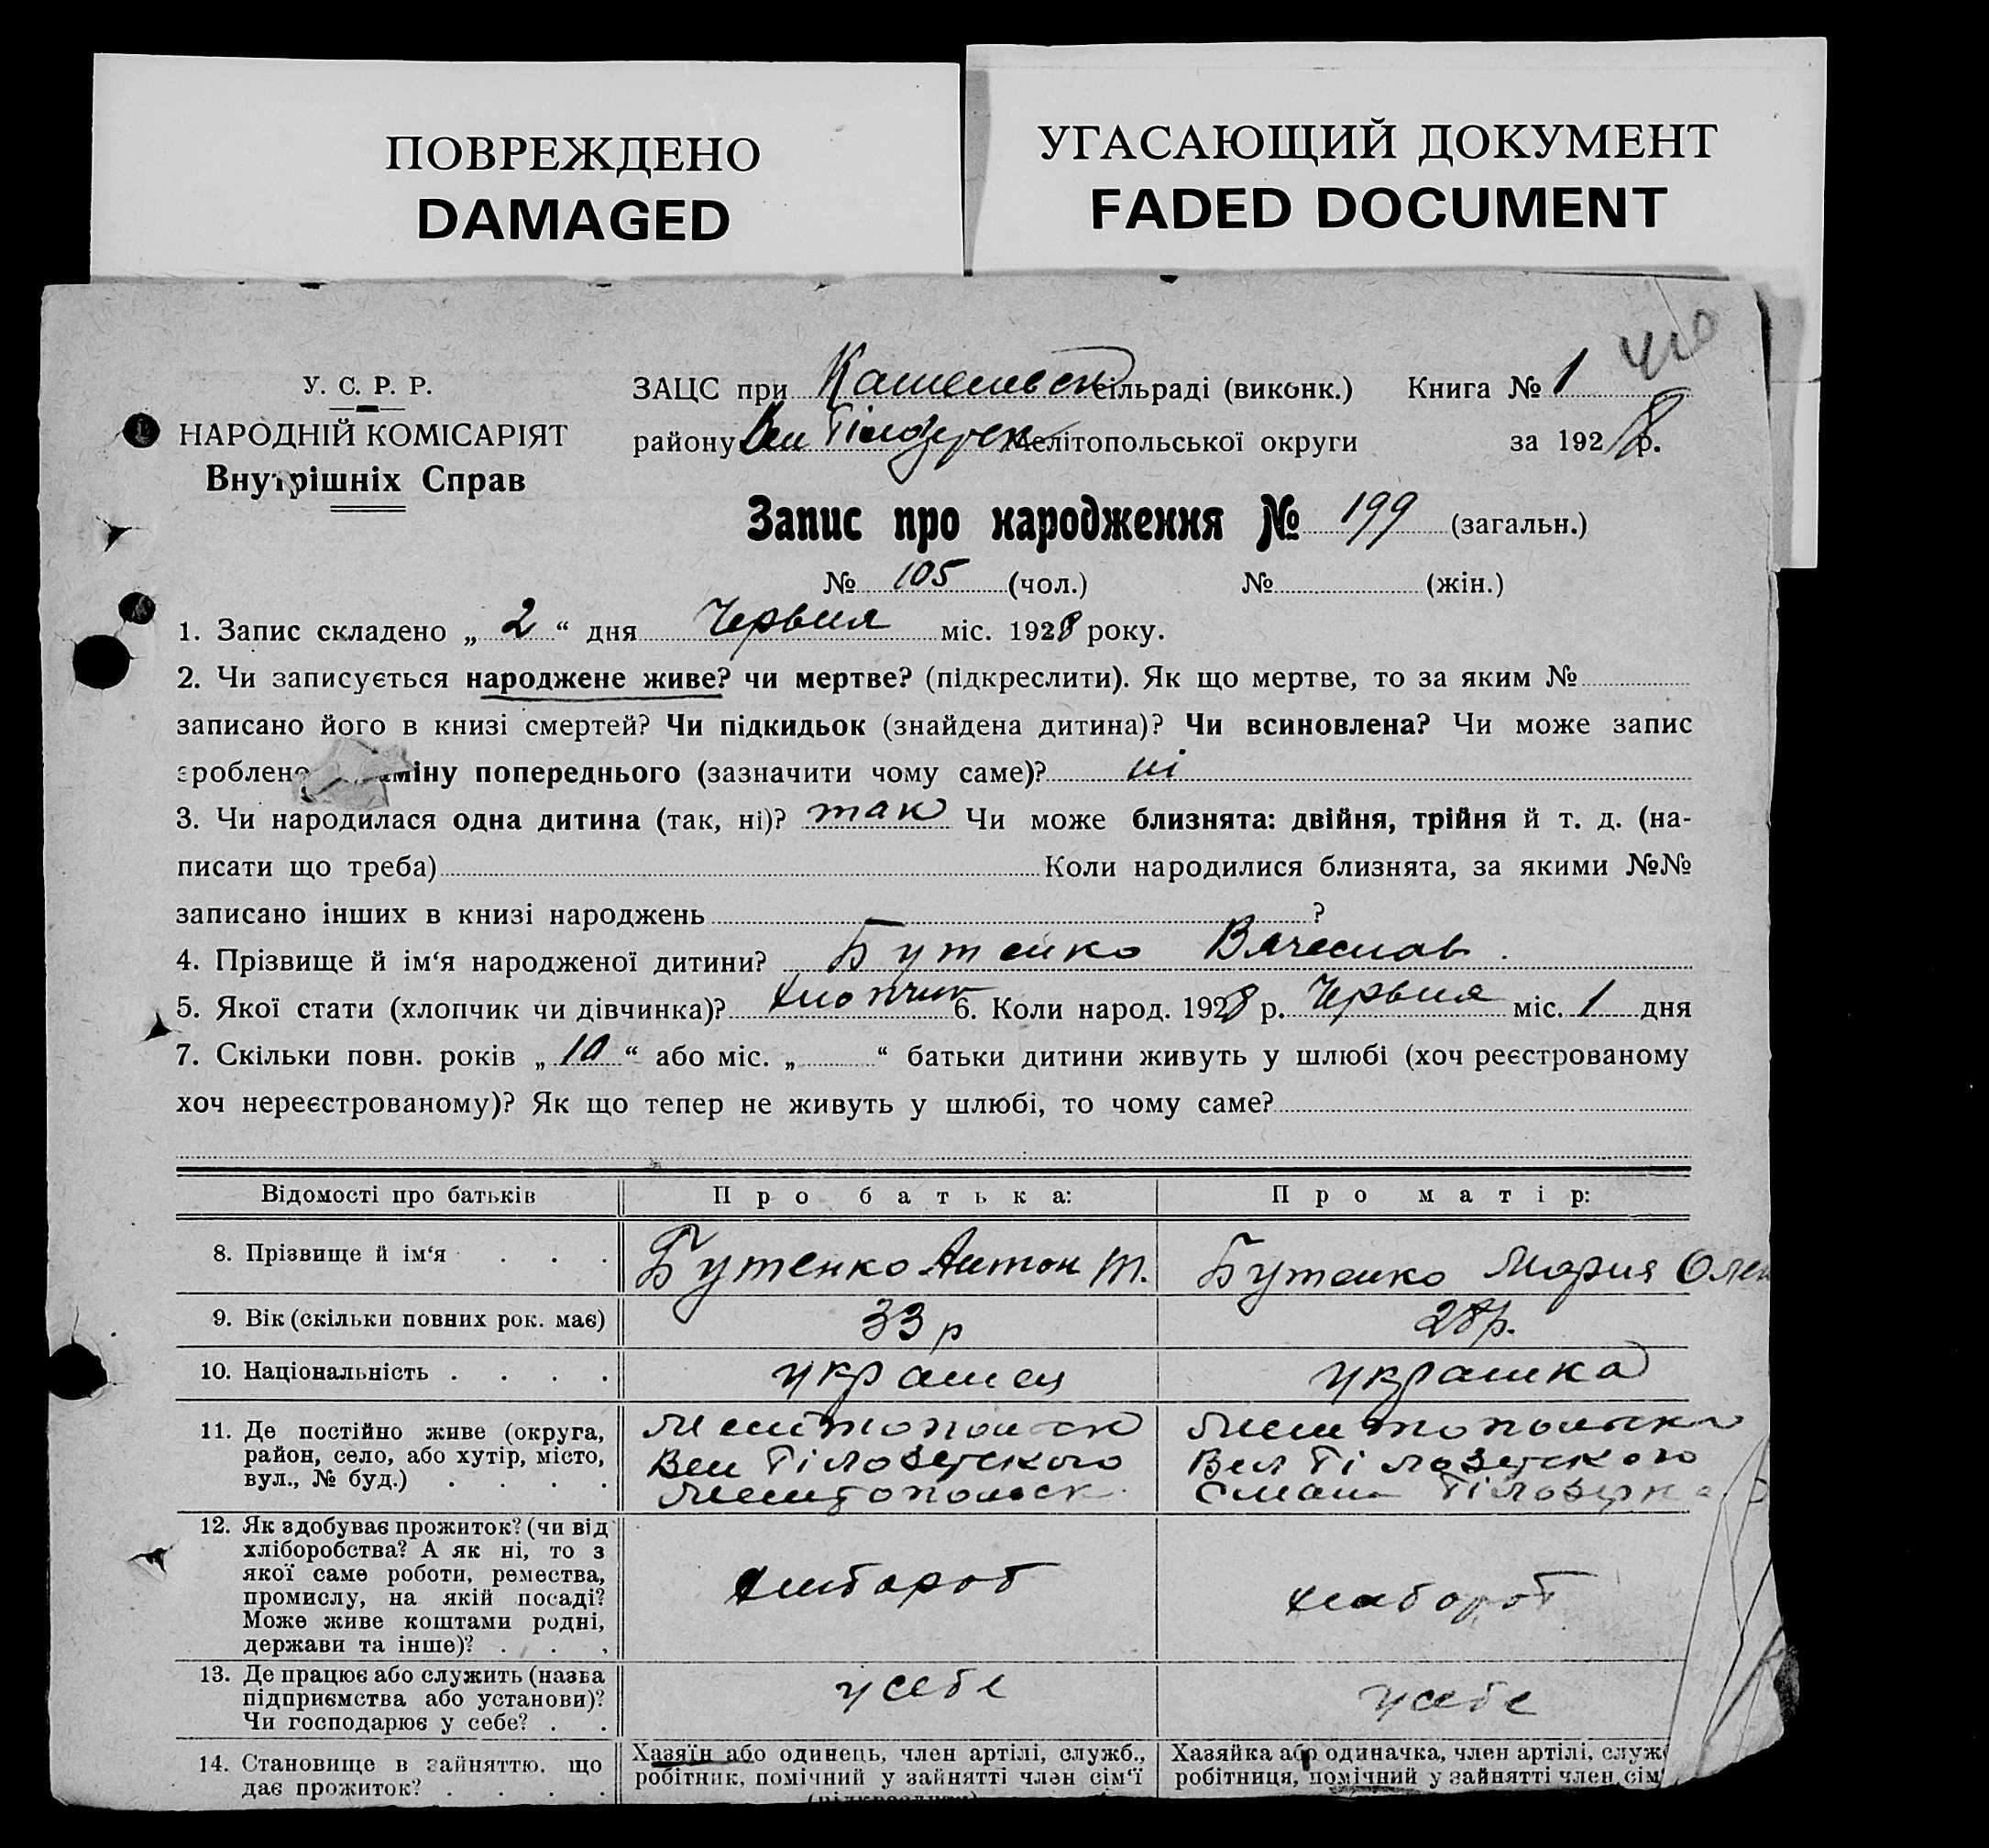 ПОВРЕЖДЕНО
DAMAGED
УГАСАЮЩИЙ ДОКУМЕНТ
FADED DOCUMENT
У. С. Р. Р.
НАРОДНІЙ КОМІСАРІЯТ
Внутрішніх Справ
ЗАЦС при сільраді (виконк.) Книга № 1
району Вел Мелітопольської округи за 1928 р.
Запис про народження № 199 (загальн.)
№ 105 (чол.) № (жін.)
1. Запис складено „ 2 “ дня Червня міс. 1928 року.
2. Чи записується народжене живе? чи мертве? (підкреслити). Як що мертве, то за яким №
записано його в книзі смертей? Чи підкидьок (знайдена дитина)? Чи всиновлена? Чи може запис
зроблено заміну попереднього (зазначити чому саме)? ні
3. Чи народилася одна дитина (так, ні)? так Чи може близнята: двійня, трійня й т. д. (на-
писати що треба) Коли народилися близнята, за якими №№
записано інших в книзі народжень ?
4. Прізвище й ім‘я народженої дитини? Бутенко Вячеслав.
5. Якої стати (хлопчик чи дівчинка)? хлопчик 6. Коли народ. 1928 р. Червня міс. 1 дня
7. Скільки повн. років „ 10 “ або міс. „ “ батьки дитини живуть у шлюбі (хоч реєстрованому
хоч нереєстрованому)? Як що тепер не живуть у шлюбі, то чому саме?
Відомості про батьків Про батька: Про матір:
8. Прізвище й ім‘я . . . Бутенко Антон Т. Бутенко Мария Олек
9. Вік (скільки повних рок. має) 33 р 28 р.
10. Національність . . . . українец українка
11. Де постійно живе (округа,
район, село, або хутір, місто,
вул., № буд.) . . . .
Мелітопольск
Вел Білозерского
Мелітопольск
Вел Білозерского
12. Як здобуває прожиток? (чи від
хліборобства? А як ні, то з
якої саме роботи, ремества,
промислу, на якій посаді?
Може живе коштами родні,
держави та інше)? . . .
хлібороб
хлібороб
13. Де працює або служить (назва
підприємства або установи)?
Чи господарює у себе? . .
у себе
у себе
14. Становище в зайняттю, що
дає прожиток? . . . .
Хазяїн або одинець, член артілі, служб.,
робітник, помічний у зайнятті член сім‘ї
(підкреслити)
Хазяйка або одиначка, член артілі, служ
робітниця, помічний у зайнятті член сім‘